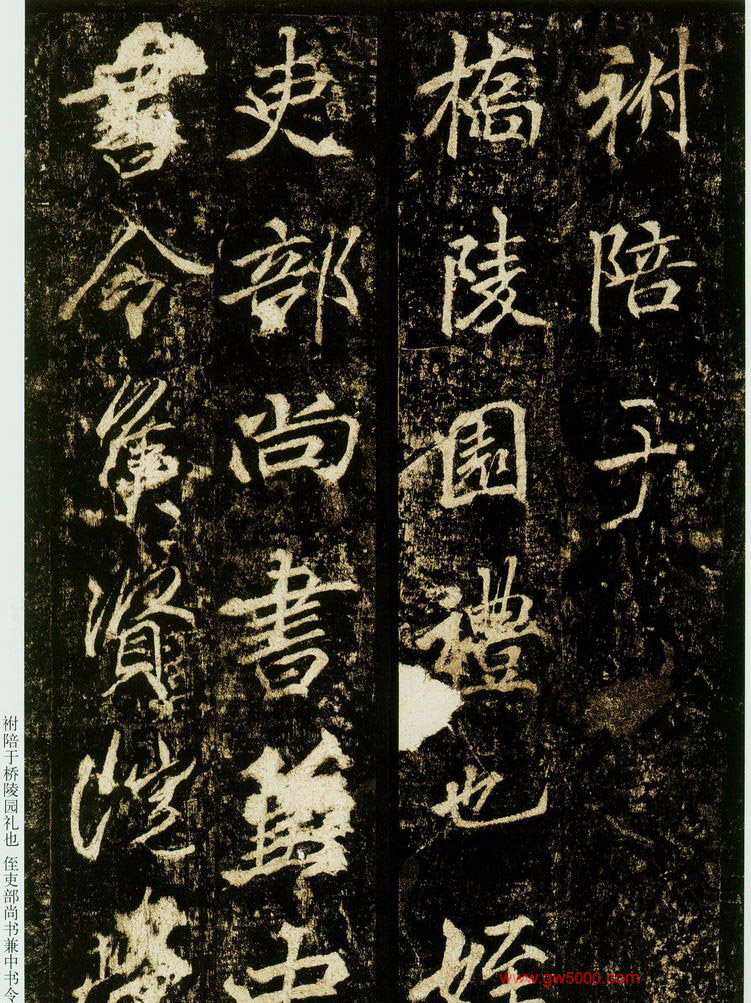 祔陪于
橋陵園禮也姪
吏部尚書兼中
書令集賢院學
祔陪于桥陵园礼也 侄吏部尚书兼中书令
www.gw5000.com